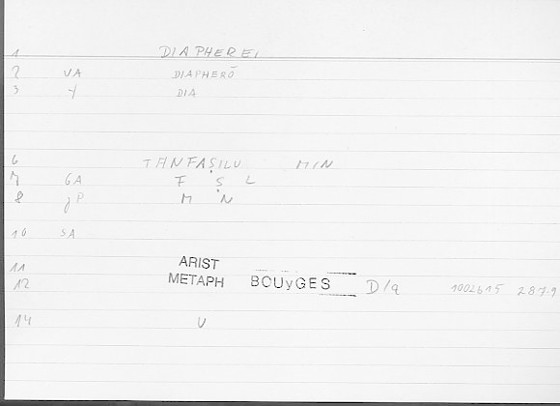 1 DIAPHEREI
2 VA DIAPHERŌ
3 Y DIA
6 TANFAṢILU MIN
7 GA F Ṣ L
8 jP M N
10 SA
11 ARIST
12 METAPH BOUyGES D/a 1002b15 287.9
14 V